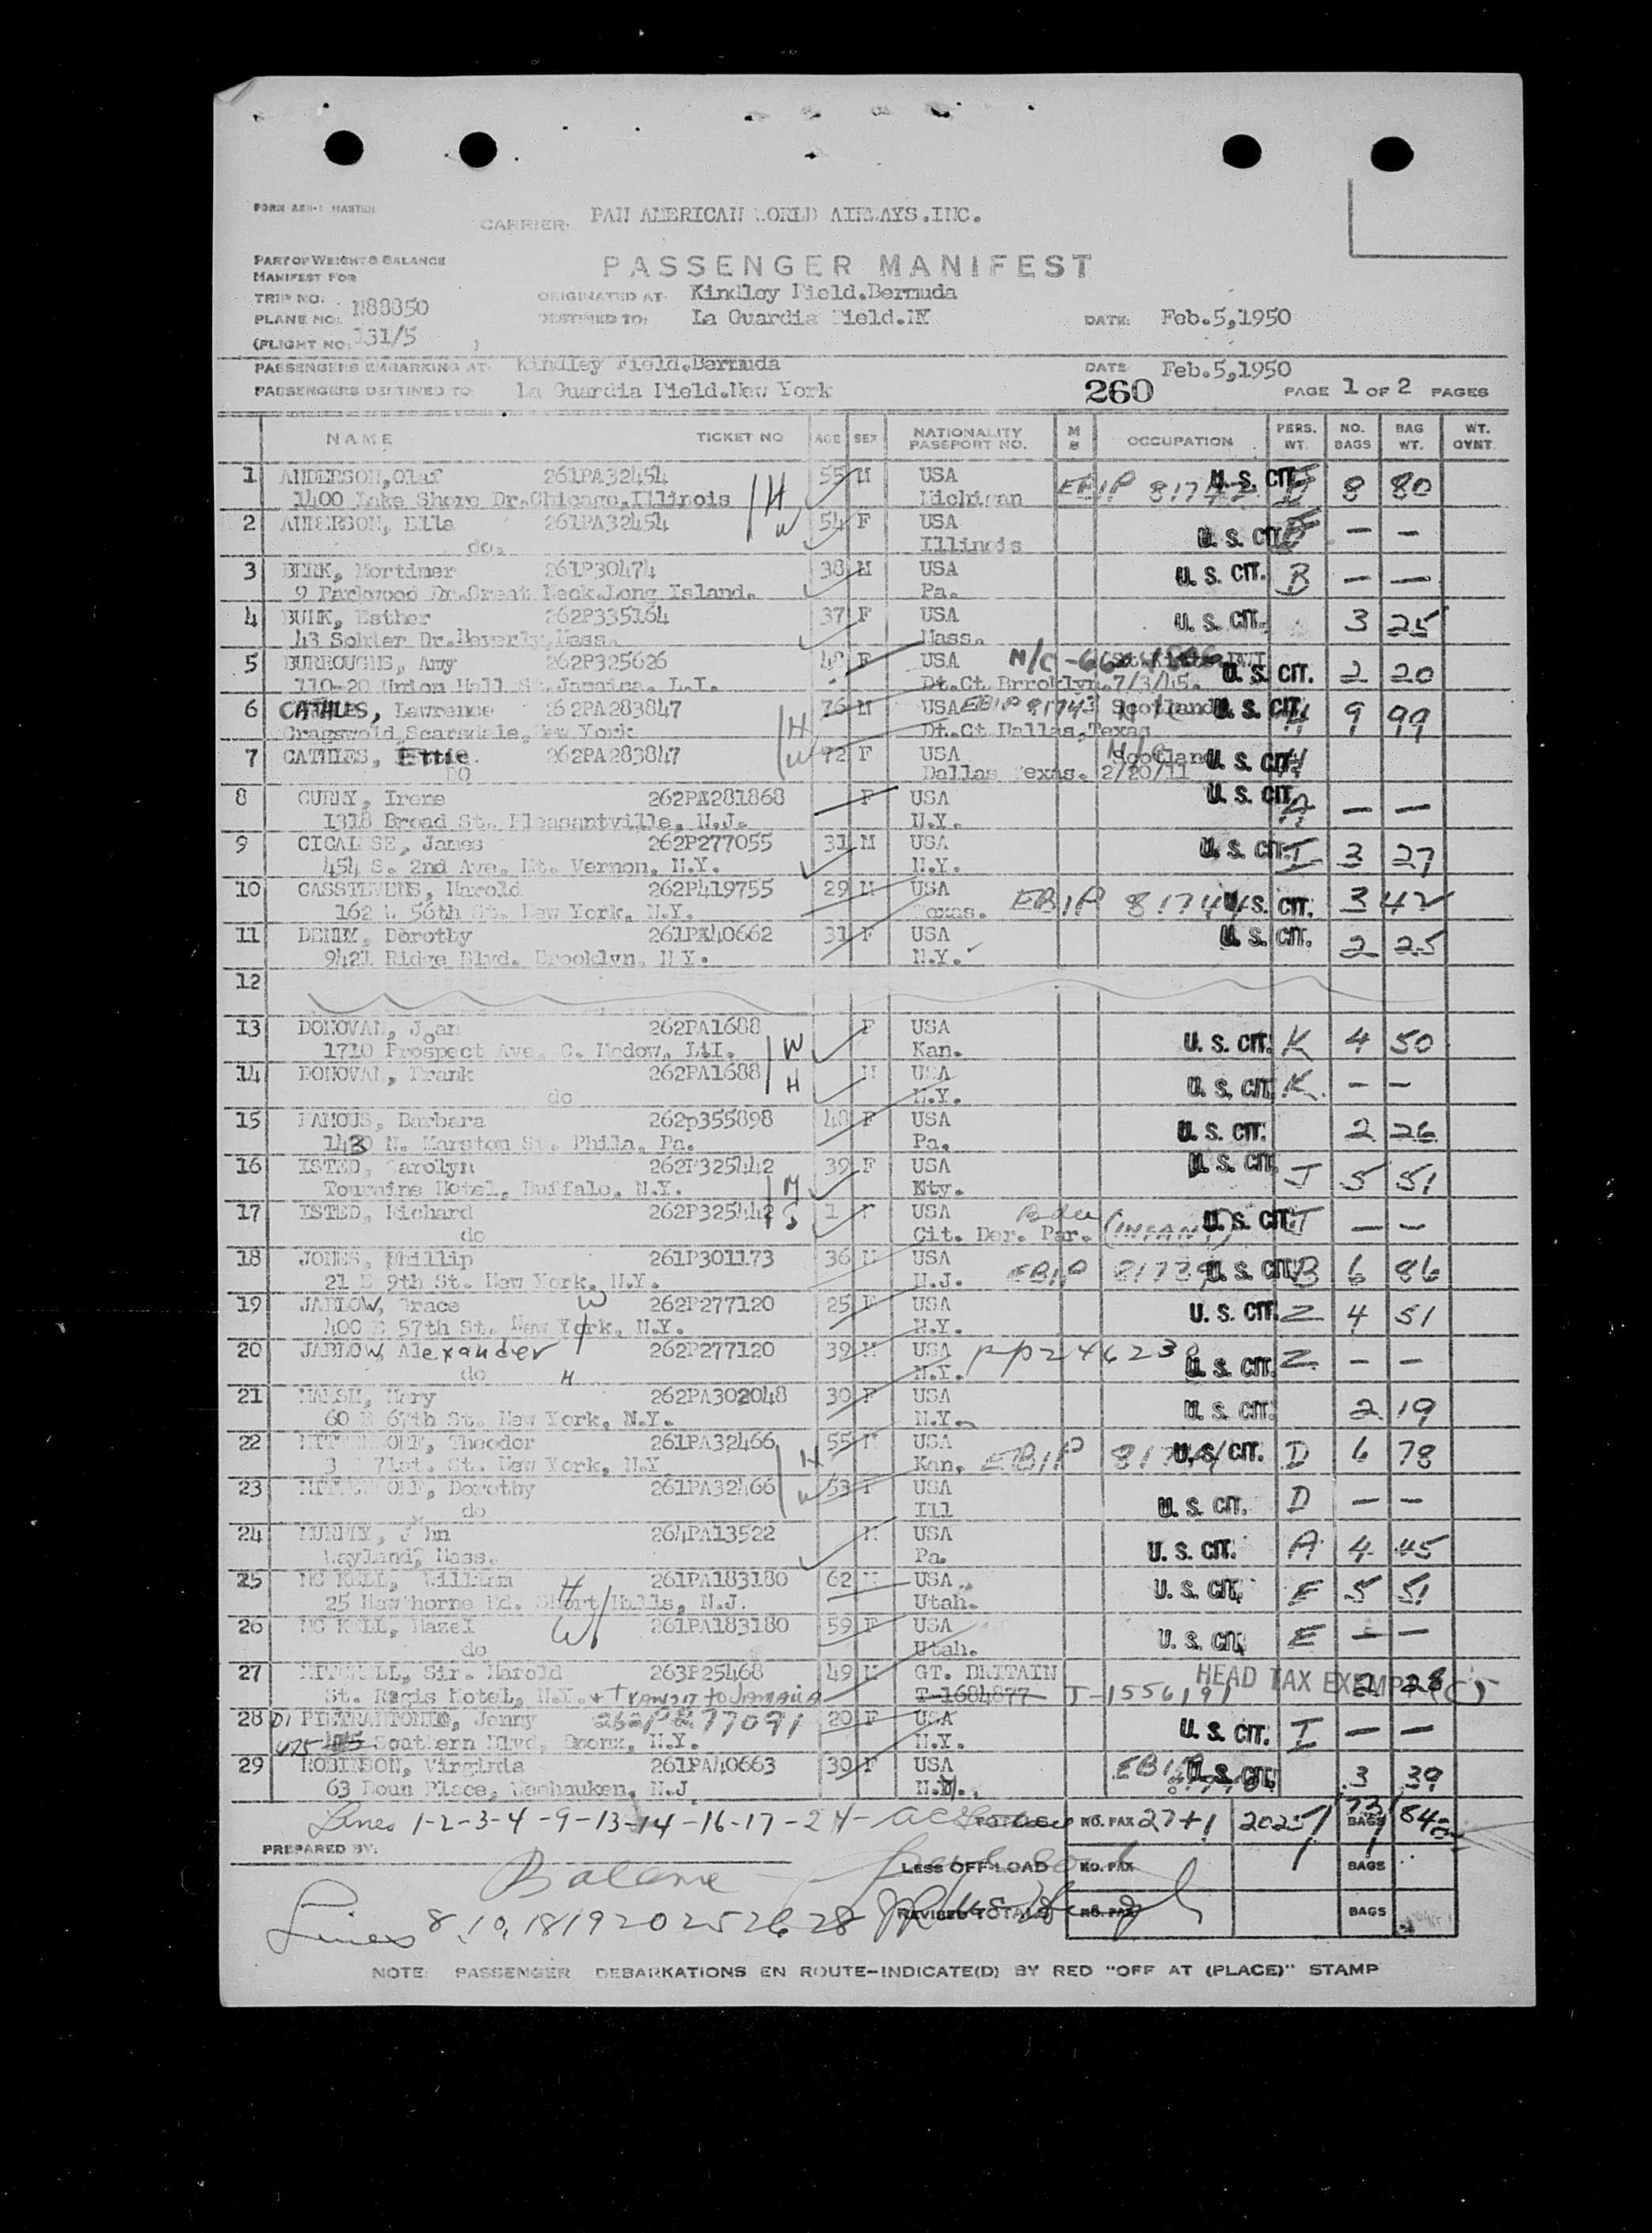 FORM ACH-1 MASTER
CARRIER: PAN AMERICAN WORLD AIRWAYS.INC.
PART OF WEIGHT & BALANCE
MANIFEST FOR
PASSENGER MANIFEST
TRIP NO.
PLANE NO: N88850
(FLIGHT NO: 131/5 )
ORIGINATED AT: Kindley Field.Bermuda
DESTINED TO: La Guardia Field.NY
DATE: Feb.5,1950
PASSENGERS EMBARKING AT: Kindley Field.Bermuda DATE: Feb.5,1950
PASSENGERS DESTINED TO La Guardia Field.New York 260 PAGE 1 OF 2 PAGES
NAME TICKET NO AGE SEX NATIONALITY PASSPORT NO. M S OCCUPATION PERS. WT. NO. BAGS BAG WT. WT. OVNT.
1 ANDERSON,Olaf 261PA32454 55 M USA U. S. CIT. 8 80
1400 Lake Shore Dr.Chicago,Illinois H Michigan EBIP
2 ANDERSON, Ella 261PA32454 W 54 F USA U. S. CIT. — —
do. Illinois
3 BERK, Mortimer 261P30474 38 M USA U. S. CIT. B — —
9 Parkwood Dr.Great Neck.Long Island. Pa.
4 BUNK, Esther 262P335164 37 F USA U. S. CIT. 3 25
43 Sohier Dr.Beverly,Mass. Mass.
5 BURROUGHS, Amy 262P325626 F USA N/C U. S. CIT. 2 20
110-20 Union Hall St.Jamaica. L.I. Dt.Ct Brrooklyn.7/3/45.
6 CATHLES, Lawrence 262PA283847 H 76 M USA EBIP 81743 Scotland U. S. CIT. H 9 99
Cragswold Scarsdale,New York Dt.Ct Dallas,Texas
7 CATHLES, Ettie. 262PA283847 W 72 F USA Scotland U. S. CIT. H
DO Dallas Texas. 2/20/11
8 CURRY, Irene 262PA281868 F USA U. S. CIT. A — —
1318 Broad St. Pleasantville, N.J. N.Y.
9 CICALESE, James 262P277055 31 M USA U. S. CIT. I 3 27
454 S. 2nd Ave. Mt. Vernon, N.Y. N.Y.
10 CASSTEVENS, Harold 262P419755 29 M USA EBIP 81744 U. S. CIT. 3 42
162 56th St. New York, N.Y. Texas.
11 DENNY, Dorothy 261PA40662 31 F USA U. S. CIT. 2 25
9421 Ridge Blvd. Brooklyn, N.Y. N.Y.
12
13 DONOVAN, Joan 262PA1688 F USA U. S. CIT. K 4 50
1710 Prospect Ave. C. Medow, L.I. W Kan.
14 DONOVAN, Frank 262PA1688 H M USA U. S. CIT. K — —
do N.Y.
15 FAMOUS, Barbara 262p355898 48 F USA U. S. CIT. 2 26
N. Marston St. Phila, Pa. Pa.
16 ISTED, Carolyn 262P325442 39 F USA U. S. CIT. J 5 51
Touraine Hotel, Buffalo, N.Y. M Kty.
17 ISTED, Richard 262P325442 S 1 M USA Bda U. S. CIT. J — —
do Cit. Der. Par. (INFANT)
18 JONES, Phillip 261P301173 36 M USA EBIP 81739 U. S. CIT. B 6 86
21 E 9th St. New York, N.Y. N.J.
19 JABLOW, Grace W 262P277120 25 F USA U. S. CIT. Z 4 51
400 E 57th St. New York, N.Y. N.Y.
20 JABLOW, Alexander 262P277120 39 M USA PP246238 U. S. CIT. Z — —
do H N.Y.
21 WALSH, Mary 262PA302048 30 F USA U. S. CIT. 2 19
60 E 67th St. New York, N.Y. N.Y.
22 Theodor 261PA32466 55 M USA U. S. CIT. D 6 78
3 71st. St. New York, N.Y H Kan. EBIP
23 Dorothy 261PA32466 W 53 F USA U. S. CIT. D — —
do Ill
24 MURPHY, John 264PA13522 M USA U. S. CIT. A 4 45
Wayland, Mass. Pa.
25 MC KELL, William H 261PA183180 62 M USA U. S. CIT. E 5 51
25 Hawthorne Rd. Short Hills, N.J. Utah.
26 MC KELL, Hazel W 261PA183180 59 F USA U. S. CIT. E — —
do Utah.
27 MITCHELL, Sir. Harold 263P25468 49 M GT. BRITAIN HEAD TAX EXEMPT 2 28
St. Regis Hotel, N.Y. + TRANSIT to JAMAICA T-1684877 J-1556191
28 DI PIETRANTONIO, Jenny 262P277091 20 F USA U. S. CIT. I — —
Southern Blvd, Bronx, N.Y. N.Y.
29 ROBINSON, Virginia 261PA40663 30 F USA EBIP U. S. CIT. 3 39
63 Doun Place, Weehauken, N.J
Lines 1-2-3-4-9-13-14-16-17-24- NO. PAX 27+1 BAGS 73
PREPARED BY:
Balance LESS OFF-LOAD NO. PAX BAGS
Lines 8,10,18 19 20 25 26 28 REVISED TOTALS NO. PAX BAGS
NOTE: PASSENGER DEBARKATIONS EN ROUTE—INDICATE(D) BY RED "OFF AT (PLACE)" STAMP